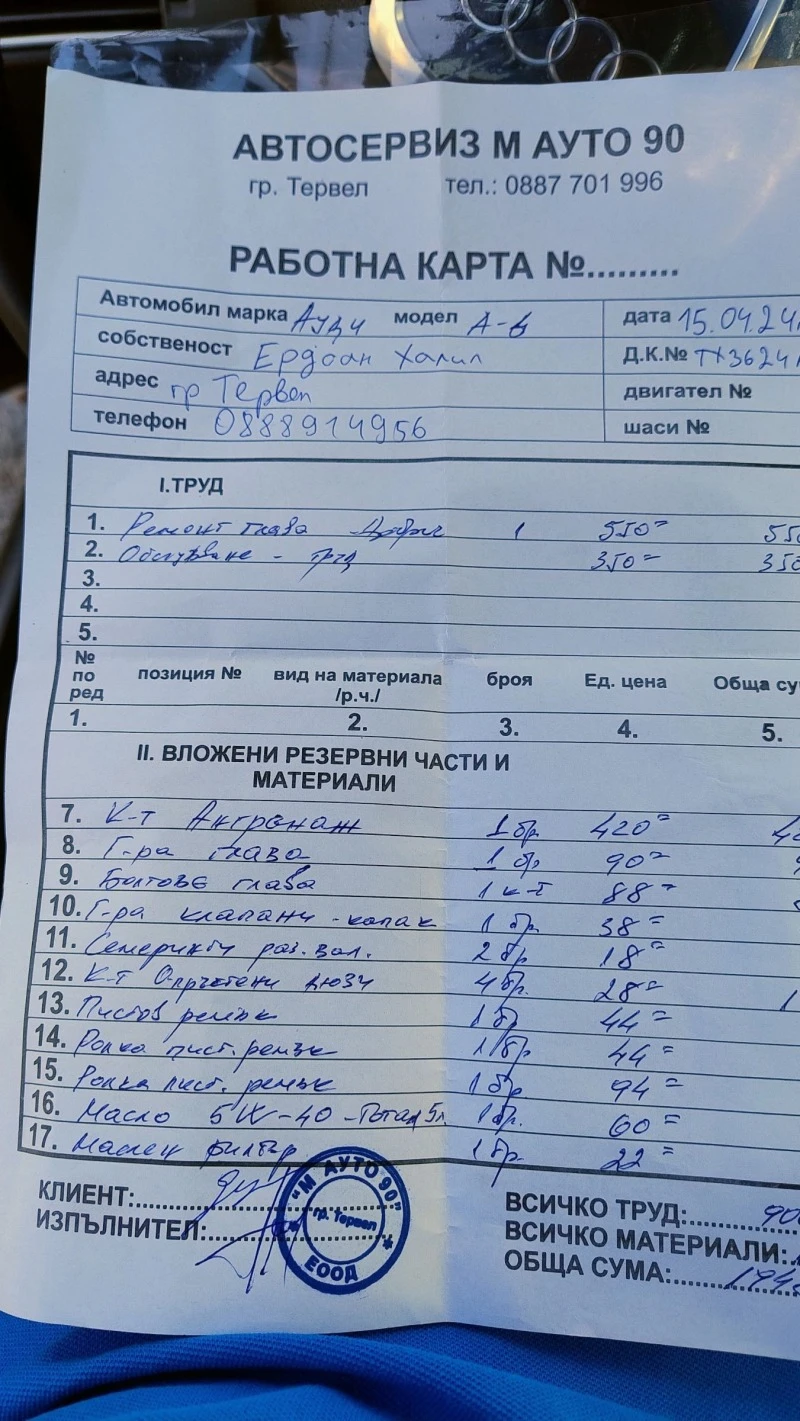 АВТОСЕРВИЗ М АУТО 90
гр. Тервел тел.: 0887 701 996
РАБОТНА КАРТА №.........
Автомобил марка Ауди модел А-6 дата 15.04.24
собственост Ердоан Халил Д.К.№ ТХ3624
адрес гр Тервел двигател №
телефон 0888914956 шаси №
I.ТРУД
1. Ремонт глава 1 550= 550
2. Обслужване - 350= 350
3.
4.
5.
№ по ред позиция № вид на материала /р.ч./ броя Ед. цена Обща су
1. 2. 3. 4. 5.
II. ВЛОЖЕНИ РЕЗЕРВНИ ЧАСТИ И
МАТЕРИАЛИ
7. К-т Ангранаж 1 бр. 420= 42
8. Г-ра глава 1 бр 90= 9
9. Болтове глава 1 к-т 88=
10. Г-ра клапани - капак 1 бр. 38=
11. Семеринги раз. вал. 2 бр. 18=
12. К-т дюзи 4 бр. 28= 1
13. Пистов ремък 1 бр 44=
14. Ролка пист. ремък 1 бр 44=
15. Ролка пист. ремък 1 бр 94=
16. Масло 5W-40 - Тотал 5л 1 бр. 60=
17. Маслен филтър 1 бр. 22=
КЛИЕНТ:
ИЗПЪЛНИТЕЛ:
"М АУТО 90"
гр. Тервел
ЕООД
ВСИЧКО ТРУД: 90
ВСИЧКО МАТЕРИАЛИ:
ОБЩА СУМА: 194